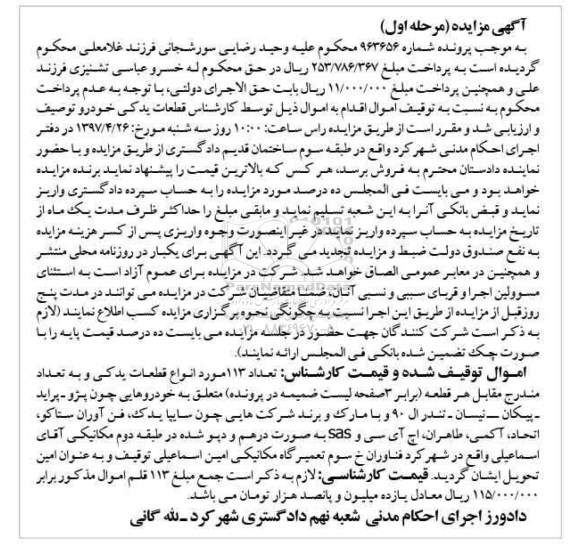 آگهی مزایده (مرحله اول)
به موجب پرونده شماره ۹۶۳۶۵۶ محکوم علیه وحید رضایی سورشجانی فرزند غلامعلی محکوم
گردیده است به پرداخت مبلغ ۲۵۳/۷۸۶/۳۶۷ ریال در حق محکوم له خسرو عباسی تشنیزی فرزند
علی و همچنین پرداخت مبلغ ۱۱/۰۰۰/۰۰۰ ریال بابت حق الاجرای دولتی، با توجه به عدم پرداخت
محکوم به نسبت به توقیف اموال اقدام به اموال ذیل توسط کارشناس قطعات یدکی خودرو توصیف
و ارزیابی شد و مقرر است از طریق مزایده راس ساعت: ۱۰:۰۰ روز سه شنبه مورخ: ۱۳۹۷/۴/۲۶ در دفتر
اجرای احکام مدنی شهرکرد واقع در طبقه سوم ساختمان قدیم دادگستری از طریق مزایده و با حضور
نماینده دادستان محترم به فروش برسد، هر کس که بالاترین قیمت را پیشنهاد نماید برنده مزایده
خواهد بود و می بایست فی المجلس ده درصد مورد مزایده را به حساب سپرده دادگستری واریز
نماید و قبض بانکی آنرا به این شعبه تسلیم نماید و مابقی مبلغ را حداکثر ظرف مدت یک ماه از
تاریخ مزایده به حساب سپرده واریز نمایند در غیر اینصورت وجوه واریزی پس از کسر هزینه مزایده
به نفع صندوق دولت ضبط و مزایده تجدید می گردد. این آگهی برای یکبار در روزنامه محلی منتشر
و همچنین در معابر عمومی الصاق خواهد شد. شرکت در مزایده برای عموم آزاد است به استثنای
مسوولین اجرا و قربای سببی و نسبی آنان، ضمنا متقاضیان شرکت در مزایده می توانند در مدت پنج
روزقبل از مزایده از طریق این اجرا نسبت به چگونگی نحوه برگزاری مزایده کسب اطلاع نمایند (لازم
به ذکر است شرکت کنندگان جهت حضور در جلسه مزایده می بایست ده درصد قیمت پایه را با
صورت چک تضمین شده بانکی فی المجلس ارائه نمایند).
اموال توقیف شده و قیمت کارشناس: تعداد ۱۱۳مورد انواع قطعات یدکی و به تعداد
مندرج مقابل هر قطعه (برابر ۳صفحه لیست ضمیمه در پرونده) متعلق به خودروهایی چون پژو ـ پراید
ـ پیکان ـ نیسان ـ تندر ال ۹۰ و با مارک و برند شرکت هایی چون سایپا یدک، فن آوران ستاکو،
اتحاد، آکمی، طاهران، اچ آی سی و sas به صورت درهم و دپو شده در طبقه دوم مکانیکی آقای
اسماعیلی واقع در شهرکرد فناوران خ سوم تعمیرگاه مکانیکی امین اسماعیلی توقیف و به عنوان امین
تحویل ایشان گردید. قیمت کارشناسی: لازم به ذکر است جمع مبلغ ۱۱۳ قلم اموال مذکور برابر
۱۱۵/۰۰۰/۰۰۰ ریال معادل یازده میلیون و پانصد هزار تومان می باشد.
دادورز اجرای احکام مدنی شعبه نهم دادگستری شهرکرد ـ لله گانی